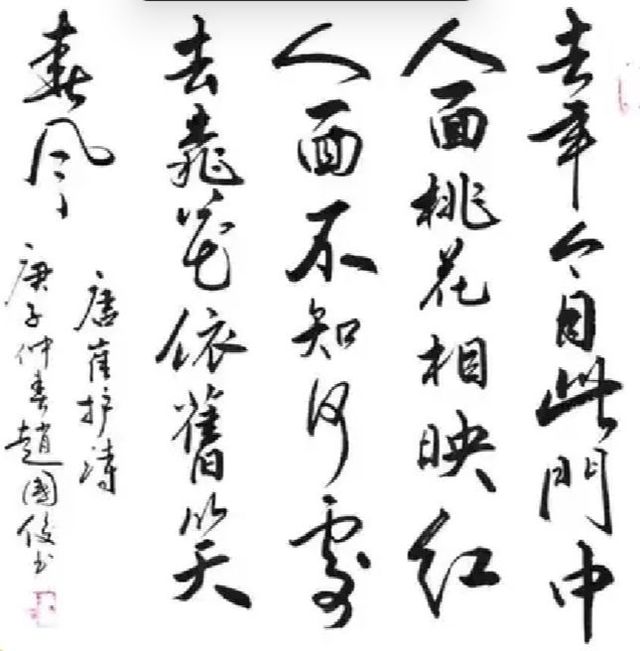 去年今日此門中
人面桃花相映红
人面不知何處
去桃花依舊笑
春风
唐崔护诗
庚子仲春趙國俊书